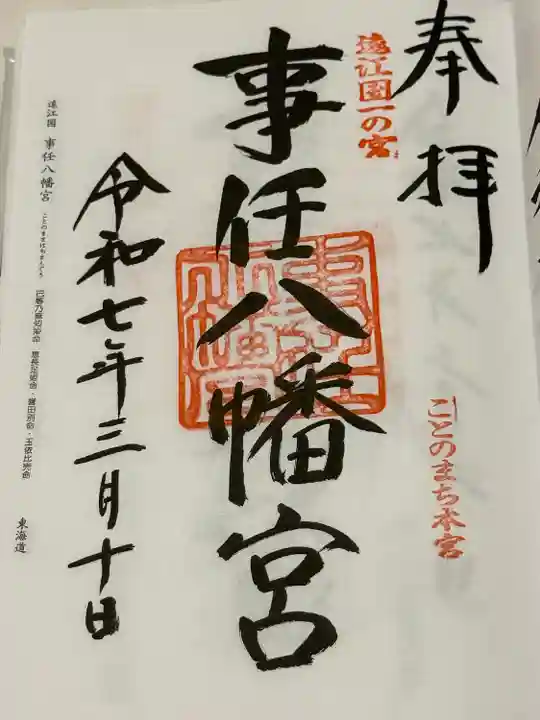 奉拝
遠江国一の宮
ことのまち本宮
事任八幡宮
令和七年三月十日
遠江国 事任八幡宮 ことのままはちまんぐう 己等乃麻知媛命 息長足姫命・誉田別命・玉依比売命 東海道